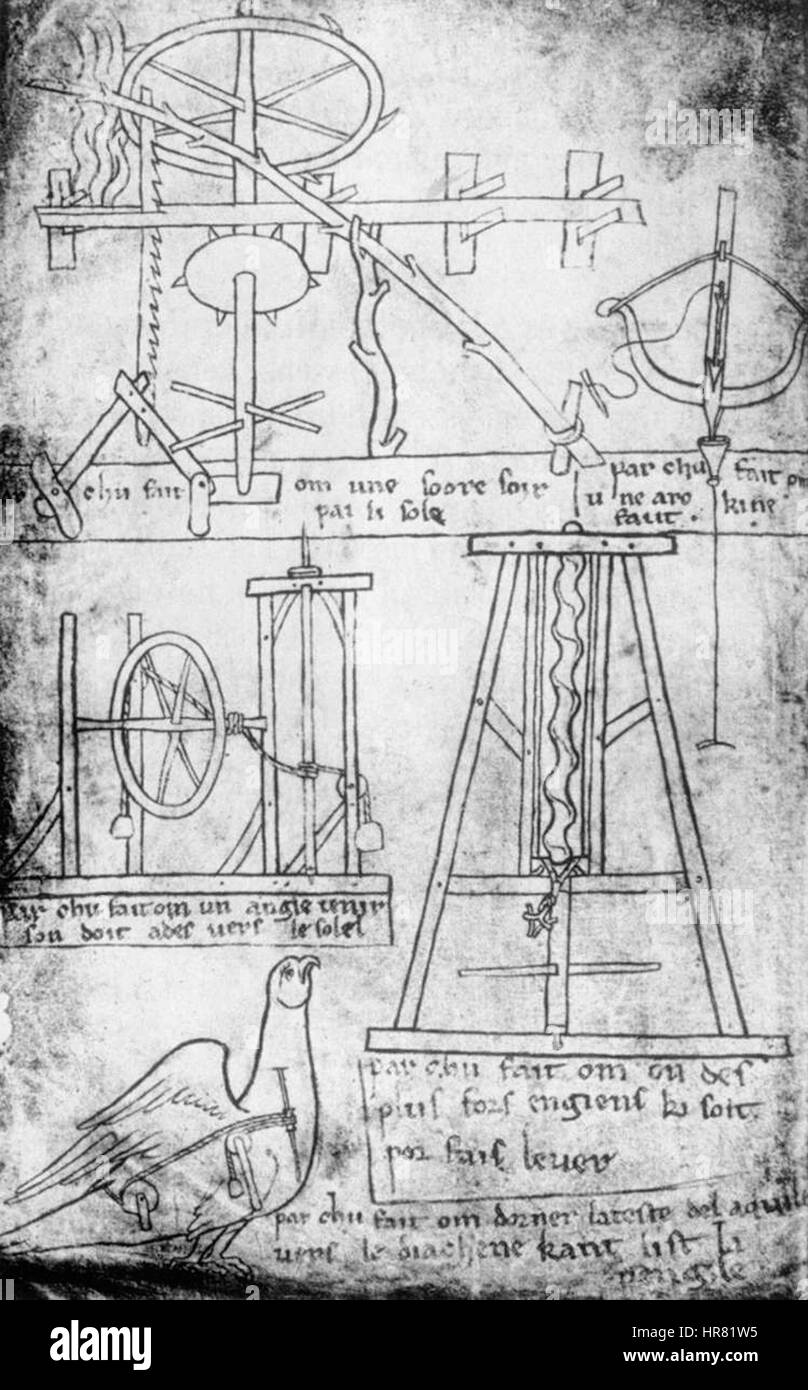 chu fait om une soore soir
par li sole
par chu fait om
une arc kine
faut .
par chu fait om un angle tenir
son doit ades vers le solel
par chu fait om on des
plus fors engiens ki soit
por fais lever
par chu fait om dorner lateste del aquile
vers le diachene kant list li
vangile
alamy stock photo
HR81W5
www.alamy.com